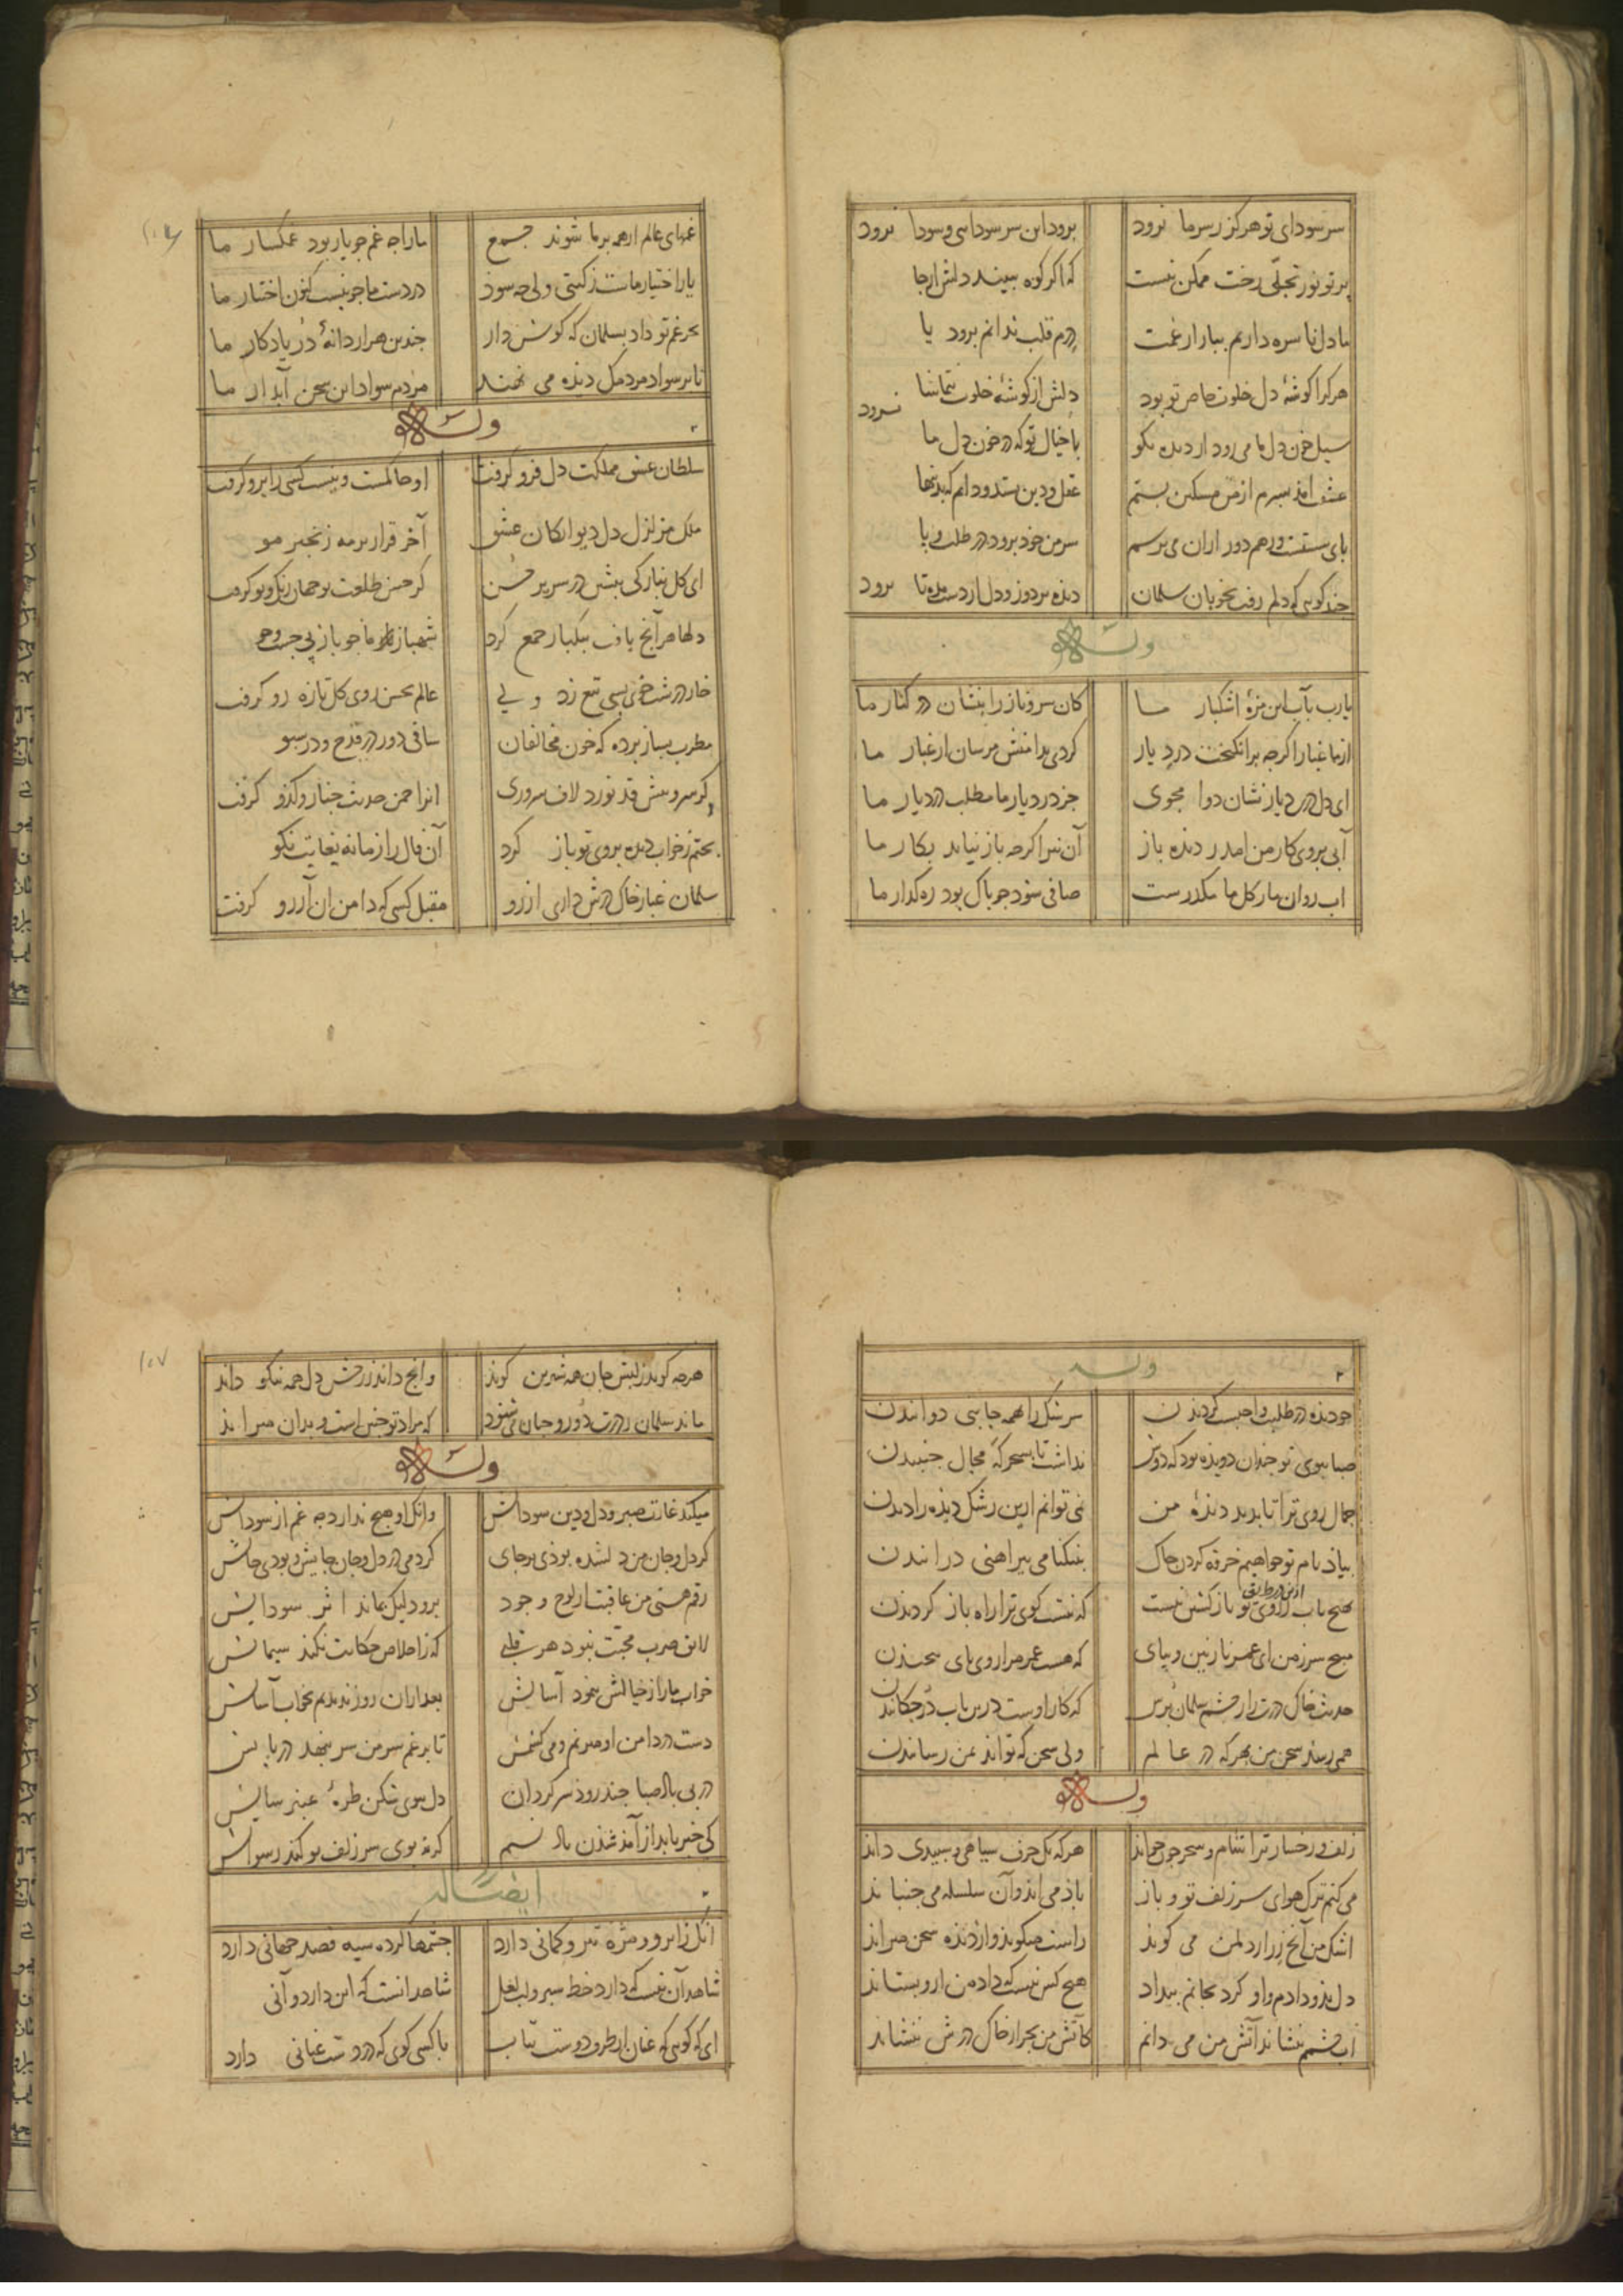 سر سودای تو هرگز ز سر ما نرود برود این سر سودایی و سودا نرود
پرتو نور تجلّی رخت ممکن نیست که اگر کوه ببیند دلش از جا
با دل ناسره داریم ببازار غمت درم قلب ندانم برود یا
هر کرا گوشهٔ دل خلوت خاص تو بود دلش از گوشهٔ خلوت بتماشا نرود
سیل خون دل ما می رود از دیده نکو با خیال تو که در خون دل ما
عشقت آمد بسرم از من مسکین بستم عقل و دین بستد و دانم که بدینها
پای سستست و رهم دور از آن می ترسم سر من خود برود در طلبت و یا
چند گویی که دلم رفت بخوبان سلمان دیده بردوز و دل از دست مده تا نرود
وله
یارب بآب این مژهٔ اشکبار ما کان سرو ناز را بنشان در کنار ما
از ما غبار اگرچه برانگیخت درد یار گردی بدامنش مرسان از غبار ما
ای دل در دیار نشان دوا مجوی جز درد یار ما مطلب در دیار ما
آبی بروی کار من آمد ز دیده باز آن نیز اگرچه باز نیاید بکار ما
آب روان ما ز گل ما مکدرست صافی شود چو پاک بود رهگذار ما
غمهای عالم ار همه بر ما شوند جمع ما را چه غم چو یار بود غمگسار ما
یار اختیار ماست ز گیتی ولی چه سود در دست ما چو نیست کنون اختیار ما
بحر غم تو داد بسلمان که گوش دار چندین هزار دانهٔ در یادگار ما
تا بر سواد مردمک دیده می نهند مردم سواد این سخن آبدار ما
وله
سلطان عشق مملکت دل فرو گرفت او حاکمست و نیست کسی را برو گرفت
ملک مزلزل دل دیوانگان عشق آخر قرار بر مه زنجیر مو
ای گل بناز کی بنشین در سریر حسن کز حسن طلعت تو جهان رنگ و بو گرفت
دلها هر آنچ یافت بیکبار جمع کرد شهباز طره ها چو باز پی جست و جو
خار درشت خوی بسی تیغ زد و لی عالم بحسن روی گل تازه رو گرفت
مطرب بساز پرده که خون مخالفان ساقی دور در قدح و در سبو
گر سرو پیش قد تو زد لاف سروری این انجمن حدیث چنار و کدو گرفت
بختم ز خواب دیده بروی تو باز کرد آن فال را زمانه بغایت نکو
سلمان غبار خاک درش داری آرزو مقبل کسی که دامن آن آرزو گرفت
وله
چو دیده در طلبت واجبست گردیدن سرشک را همه جانبی دوانیدن
صبا ببوی تو چندان دویده بود که دوش نداشت تا بسحرگه مجال جنبیدن
جمال روی ترا تا بدید دیدهٔ من نمی توانم ازین رشک دیده را دیدن
بیاد نام تو خواهیم خرقه کردن چاک بنیکنامی پیراهنی درانیدن
بهیچ باب ازین در طریق از روی تو باز گشتن نیست که نیست کوی ترا راه باز گردیدن
مپیچ سر ز من ای عمر نازنین و بپای که هست عمر مرا روی پای پیچیدن
حدیث خاک درت را ز چشم سلمان پرس که کار اوست درین باب در چکانیدن
همی رسد سخن من بهر که در عالم ولی سخن که تواند بمن رسانیدن
وله
زلف و رخسار ترا شام و سحر چون خواند هر که یک حرف سیاهی و سپیدی داند
می کنم ترک هوای سر زلف تو و باز باد می آید و آن سلسله می جنباند
اشک من آنچ ز راز دلمت می گوید راست میگوید و از دیده سخن میراند
دل بدو دادم و او کرد بجانم بیداد هیچ کس نیست که داد من ازو بستاند
آب چشمم ننشاند آتش من می دانم کاتش من بجز از خاک درش ننشاند
هر چه گوید ز لبش جان همه شیرین گوید و آنچ داند ز رخش دل همه نیکو داند
ماند سلمان ز درت دور و جان می شنود که مراد تو چنین است و بدان میراند
وله
میکند غارت صبر و دل و دین سوداش وانک او هیچ ندارد چه غم از سوداش
گر دل و جان من دلشده بودی بر جای کردمی در دل و جان جایش و بودی جاش
رقم هستی من عاقبت از لوح وجود برود لیک بماند اثر سودایش
لایق ضرب محبت نبود هر قلبی که ز اخلاص حکایت نکند سیمایش
خواب ما را ز خیالش نبود آسایش بعد از آن روز ندیدیم بخواب آسایش
دست در دامن او میزنم و می کشمش تا برغم سر من سر ننهد در پایش
در پی باد صبا چند رود سرگردان دل ببوی شکن طرهٔ عنبر سایش
کی خبر یابد از آمد شدن باد نسیم گر نه بوی سر زلف تو کند رسواش
ایضاً له
آنک از ابرو و مژه تیر و کمانی دارد چشمها کرده سیه قصد جهانی دارد
شاهد آن نیست که دارد خط سبز و لب لعل شاهد آنست که این دارد و آنی
ای که گویی که عنان از طرف دوست بتاب با کسی گوی که در دست عنانی دارد
۱۰۷